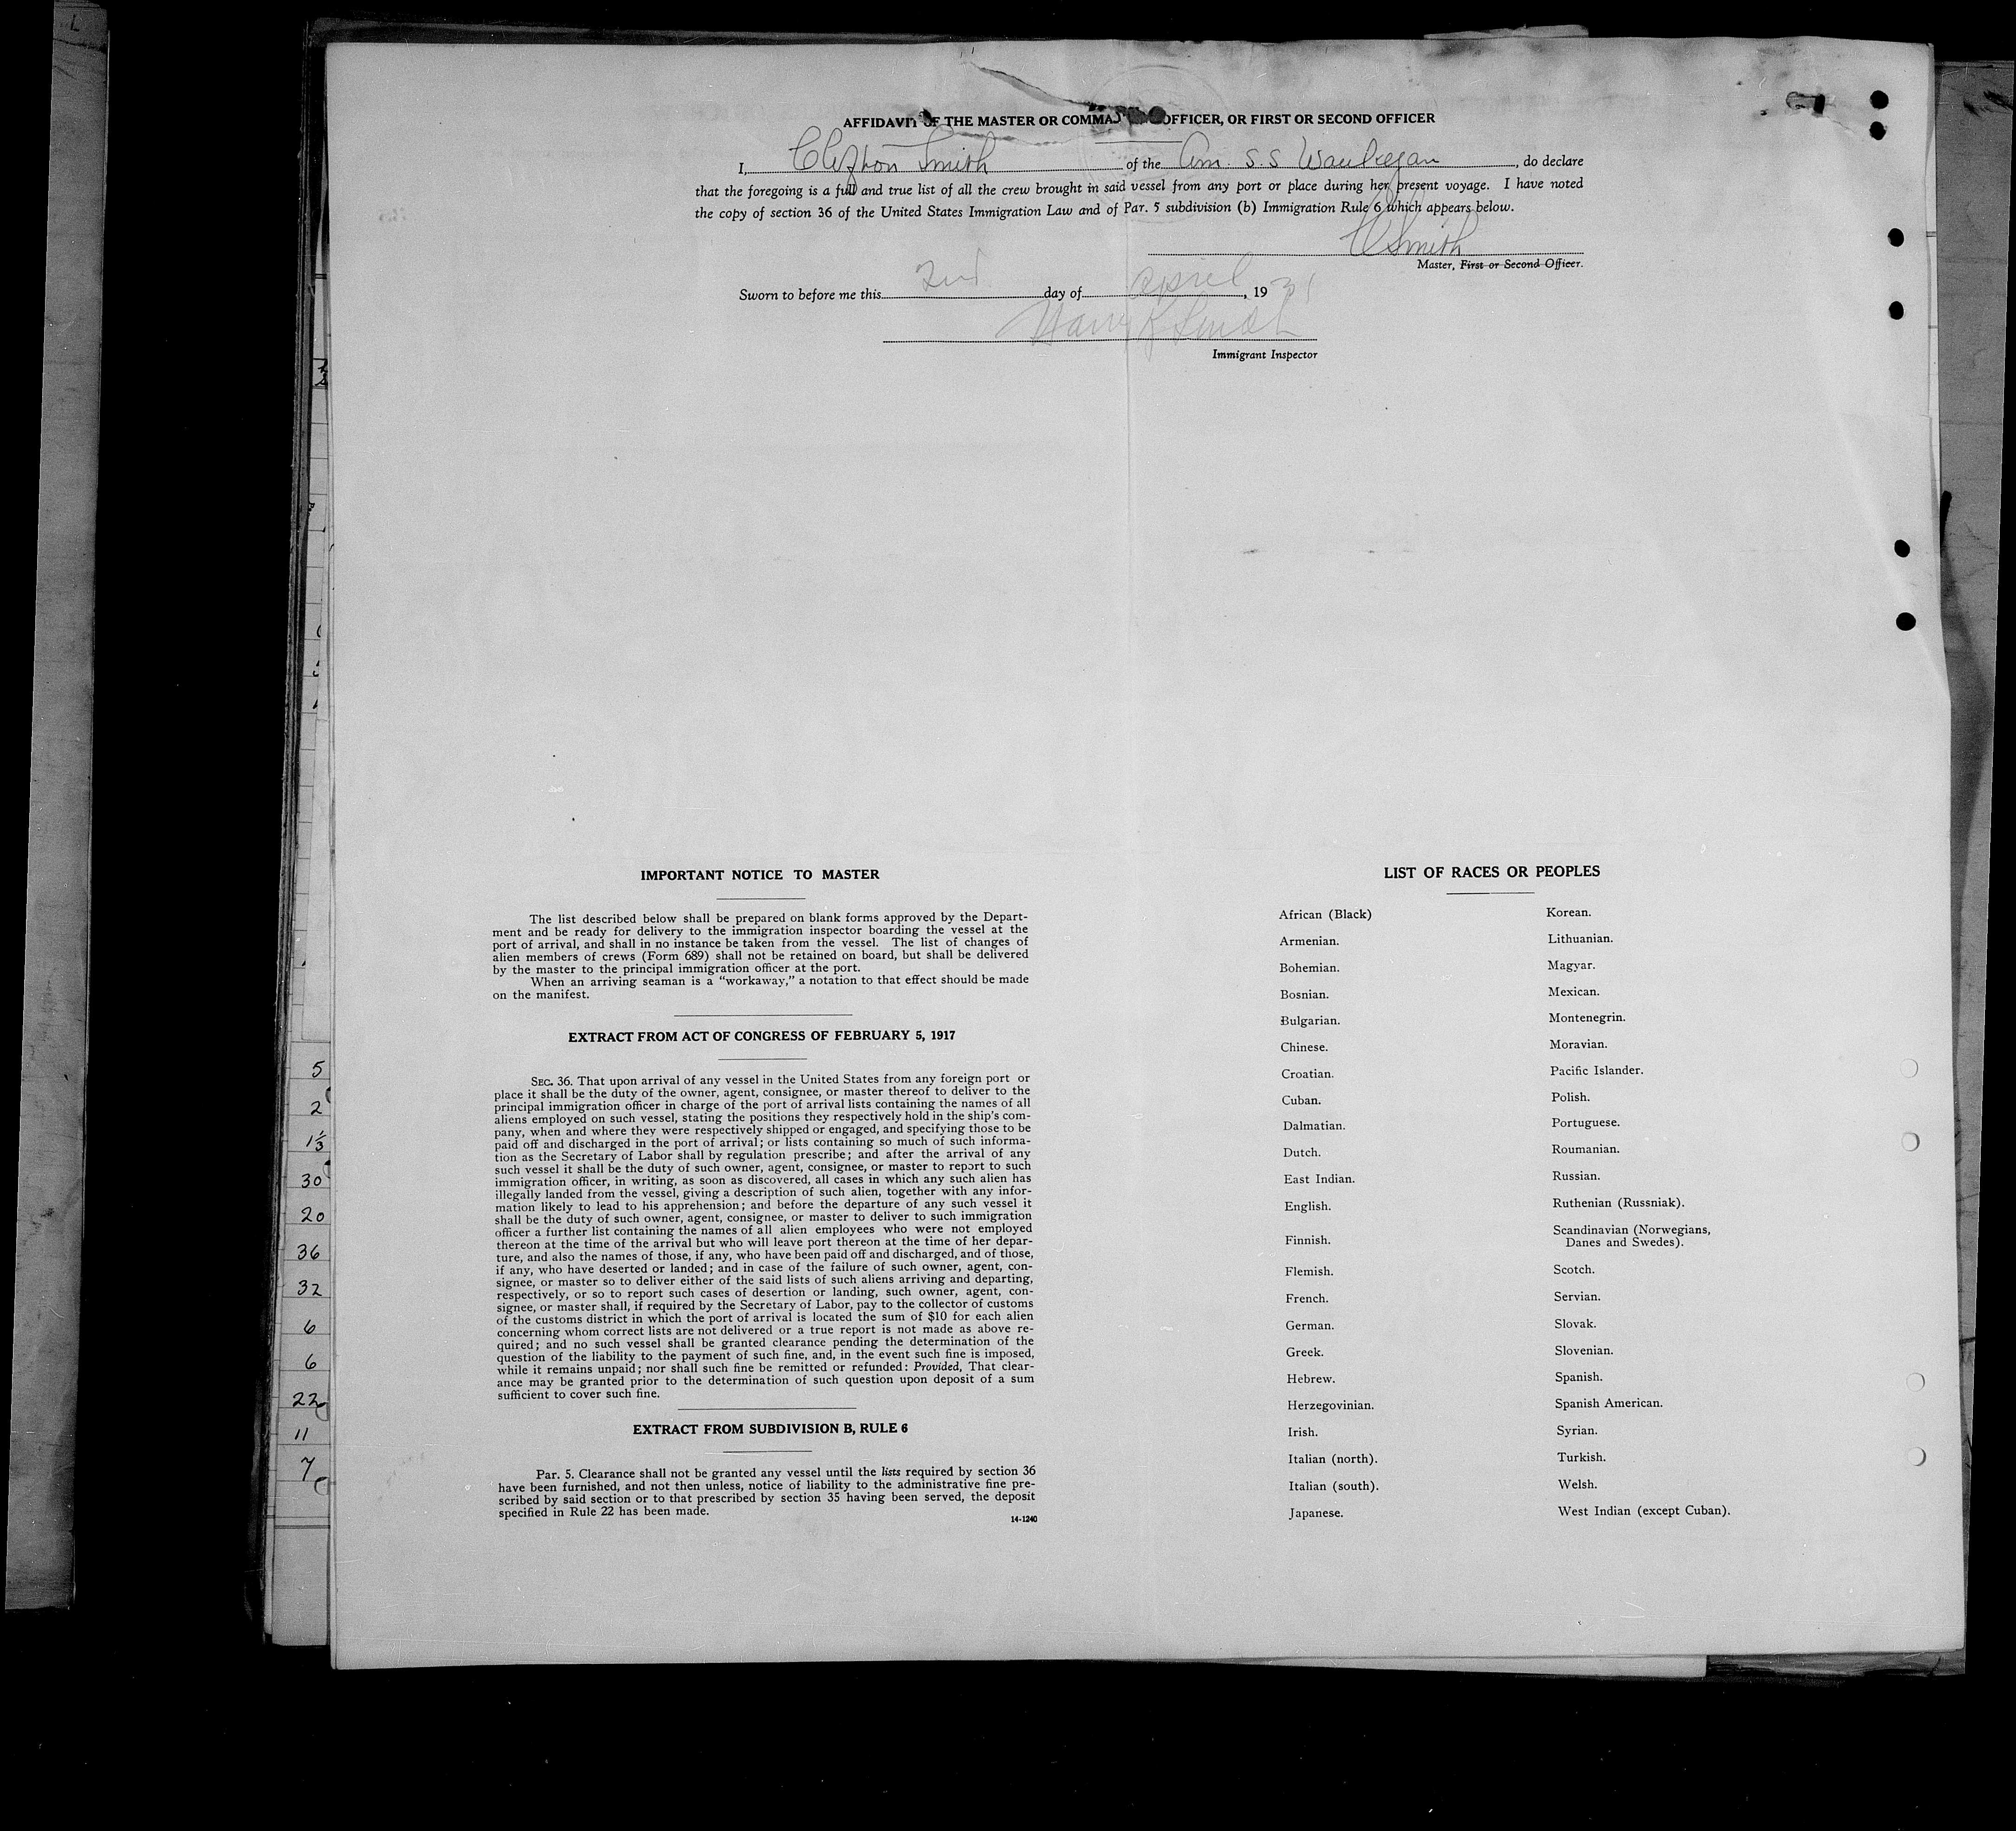 AFFIDAVIT OF THE MASTER OR COMMA OFFICER, OR FIRST OR SECOND OFFICER
I, Clifton Smith of the Am. S.S Waukegan, do declare
that the foregoing is a full and true list of all the crew brought in said vessel from any port or place during her present voyage. I have noted
the copy of section 36 of the United States Immigration Law and of Par. 5 subdivision (b) Immigration Rule 6 which appears below.
C Smith
Master, First or Second Officer.
Sworn to before me this 2nd day of April, 1931
Harry K Smith
Immigrant Inspector
IMPORTANT NOTICE TO MASTER
The list described below shall be prepared on blank forms approved by the Depart-
ment and be ready for delivery to the immigration inspector boarding the vessel at the
port of arrival, and shall in no instance be taken from the vessel. The list of changes of
alien members of crews (Form 689) shall not be retained on board, but shall be delivered
by the master to the principal immigration officer at the port.
When an arriving seaman is a “workaway,” a notation to that effect should be made
on the manifest.
EXTRACT FROM ACT OF CONGRESS OF FEBRUARY 5, 1917
SEC. 36. That upon arrival of any vessel in the United States from any foreign port or
place it shall be the duty of the owner, agent, consignee, or master thereof to deliver to the
principal immigration officer in charge of the port of arrival lists containing the names of all
aliens employed on such vessel, stating the positions they respectively hold in the ship's com-
pany, when and where they were respectively shipped or engaged, and specifying those to be
paid off and discharged in the port of arrival; or lists containing so much of such informa-
tion as the Secretary of Labor shall by regulation prescribe; and after the arrival of any
such vessel it shall be the duty of such owner, agent, consignee, or master to report to such
immigration officer, in writing, as soon as discovered, all cases in which any such alien has
illegally landed from the vessel, giving a description of such alien, together with any infor-
mation likely to lead to his apprehension; and before the departure of any such vessel it
shall be the duty of such owner, agent, consignee, or master to deliver to such immigration
officer a further list containing the names of all alien employees who were not employed
thereon at the time of the arrival but who will leave port thereon at the time of her depar-
ture, and also the names of those, if any, who have been paid off and discharged, and of those,
if any, who have deserted or landed; and in case of the failure of such owner, agent, con-
signee, or master so to deliver either of the said lists of such aliens arriving and departing,
respectively, or so to report such cases of desertion or landing, such owner, agent, con-
signee, or master shall, if required by the Secretary of Labor, pay to the collector of customs
of the customs district in which the port of arrival is located the sum of $10 for each alien
concerning whom correct lists are not delivered or a true report is not made as above re-
quired; and no such vessel shall be granted clearance pending the determination of the
question of the liability to the payment of such fine, and, in the event such fine is imposed,
while it remains unpaid; nor shall such fine be remitted or refunded: Provided, That clear-
ance may be granted prior to the determination of such question upon deposit of a sum
sufficient to cover such fine.
EXTRACT FROM SUBDIVISION B, RULE 6
Par. 5. Clearance shall not be granted any vessel until the lists required by section 36
have been furnished, and not then unless, notice of liability to the administrative fine pre-
scribed by said section or to that prescribed by section 35 having been served, the deposit
specified in Rule 22 has been made.
14-1240
LIST OF RACES OR PEOPLES
African (Black)
Armenian.
Bohemian.
Bosnian.
Bulgarian.
Chinese.
Croatian.
Cuban.
Dalmatian.
Dutch.
East Indian.
English.
Finnish.
Flemish.
French.
German.
Greek.
Hebrew.
Herzegovinian.
Irish.
Italian (north).
Italian (south).
Japanese.
Korean.
Lithuanian.
Magyar.
Mexican.
Montenegrin.
Moravian.
Pacific Islander.
Polish.
Portuguese.
Roumanian.
Russian.
Ruthenian (Russniak).
Scandinavian (Norwegians,
Danes and Swedes).
Scotch.
Servian.
Slovak.
Slovenian.
Spanish.
Spanish American.
Syrian.
Turkish.
Welsh.
West Indian (except Cuban).
5
2
30
20
36
32
6
6
22
11
7